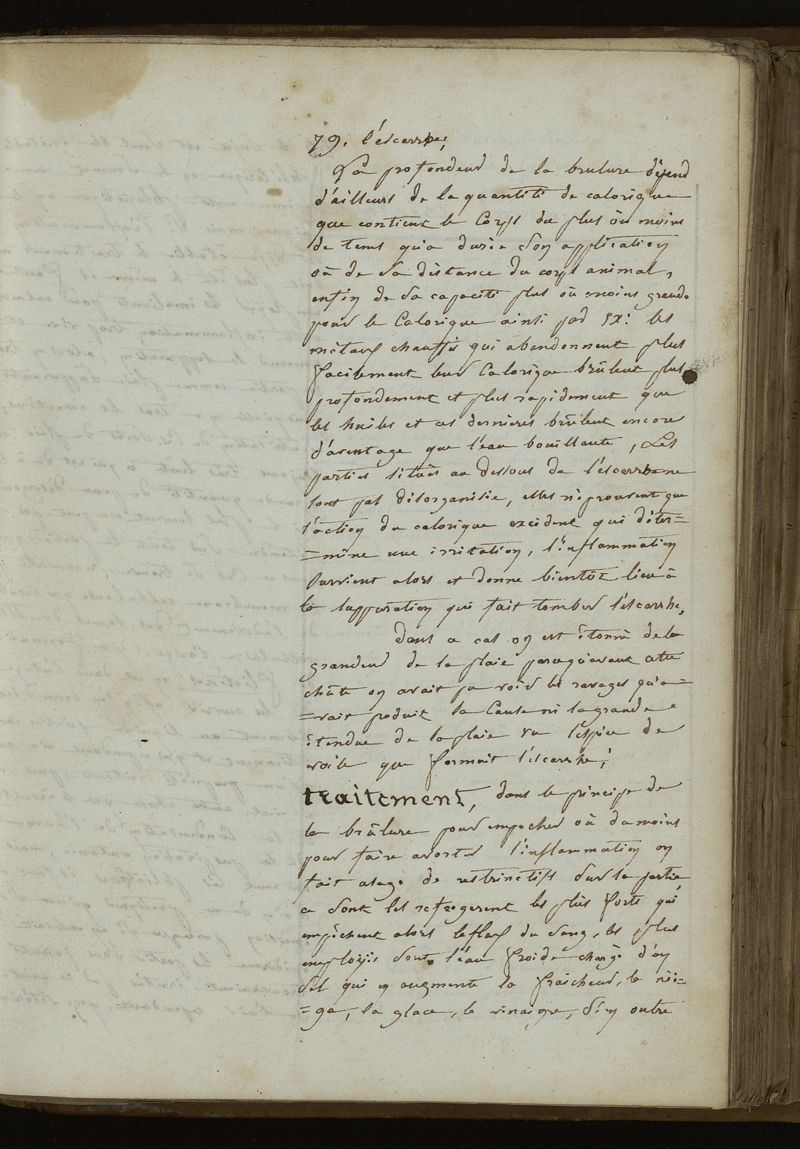 79. l'escarrhe;
La profondeur de la brulure dépend
d'ailleurs de la quantité de calorique
que contient le Corps du plus ou moins
de tems qu'a durée son application
ou de sa distance du corps animal,
enfin de sa capacité plus ou moins grande
pour le Calorique ainsi par Ex: les
métaux chauffés qui abandonnent plus
facilement leur Calorique brûlent plus
profondement et plus rapidement que
les huiles et ces dernieres brûlent encore
d'avantage que l'eau bouillante, Les
parties situés au dessous de l'escarrhe ne
sont pas disorganisée, elles n'éprouvent que
l'action du calorique excédent qui déter=
=mine une irritation, l'inflammation
survient alors et donne bientôt lieu à
la suppuration qui fait tomber l'escarrhe,
dans ce cas on est étonné de la
grandeur de la plaie parcequ'avant cette
chûte on avait pu voir les ravages qu'a=
=vait produit la Cause ni la grande
étendue de la plaie vu l'espèce de
voile que formait l'escarrhe;
traitement, dans le principe de
la brûlure pour empecher où du moins
pour faire avorter l'inflammation on
fait usage de restrinctifs sur la partie
ce sont les refregerent les plus forts qui
empêchent alors le flux du sang, les plus
employés sont l'eau froide chargé d'un
sel qui en augmente la fraicheur, la néi=
=ge, la glace, le vinaigre, d'en outre